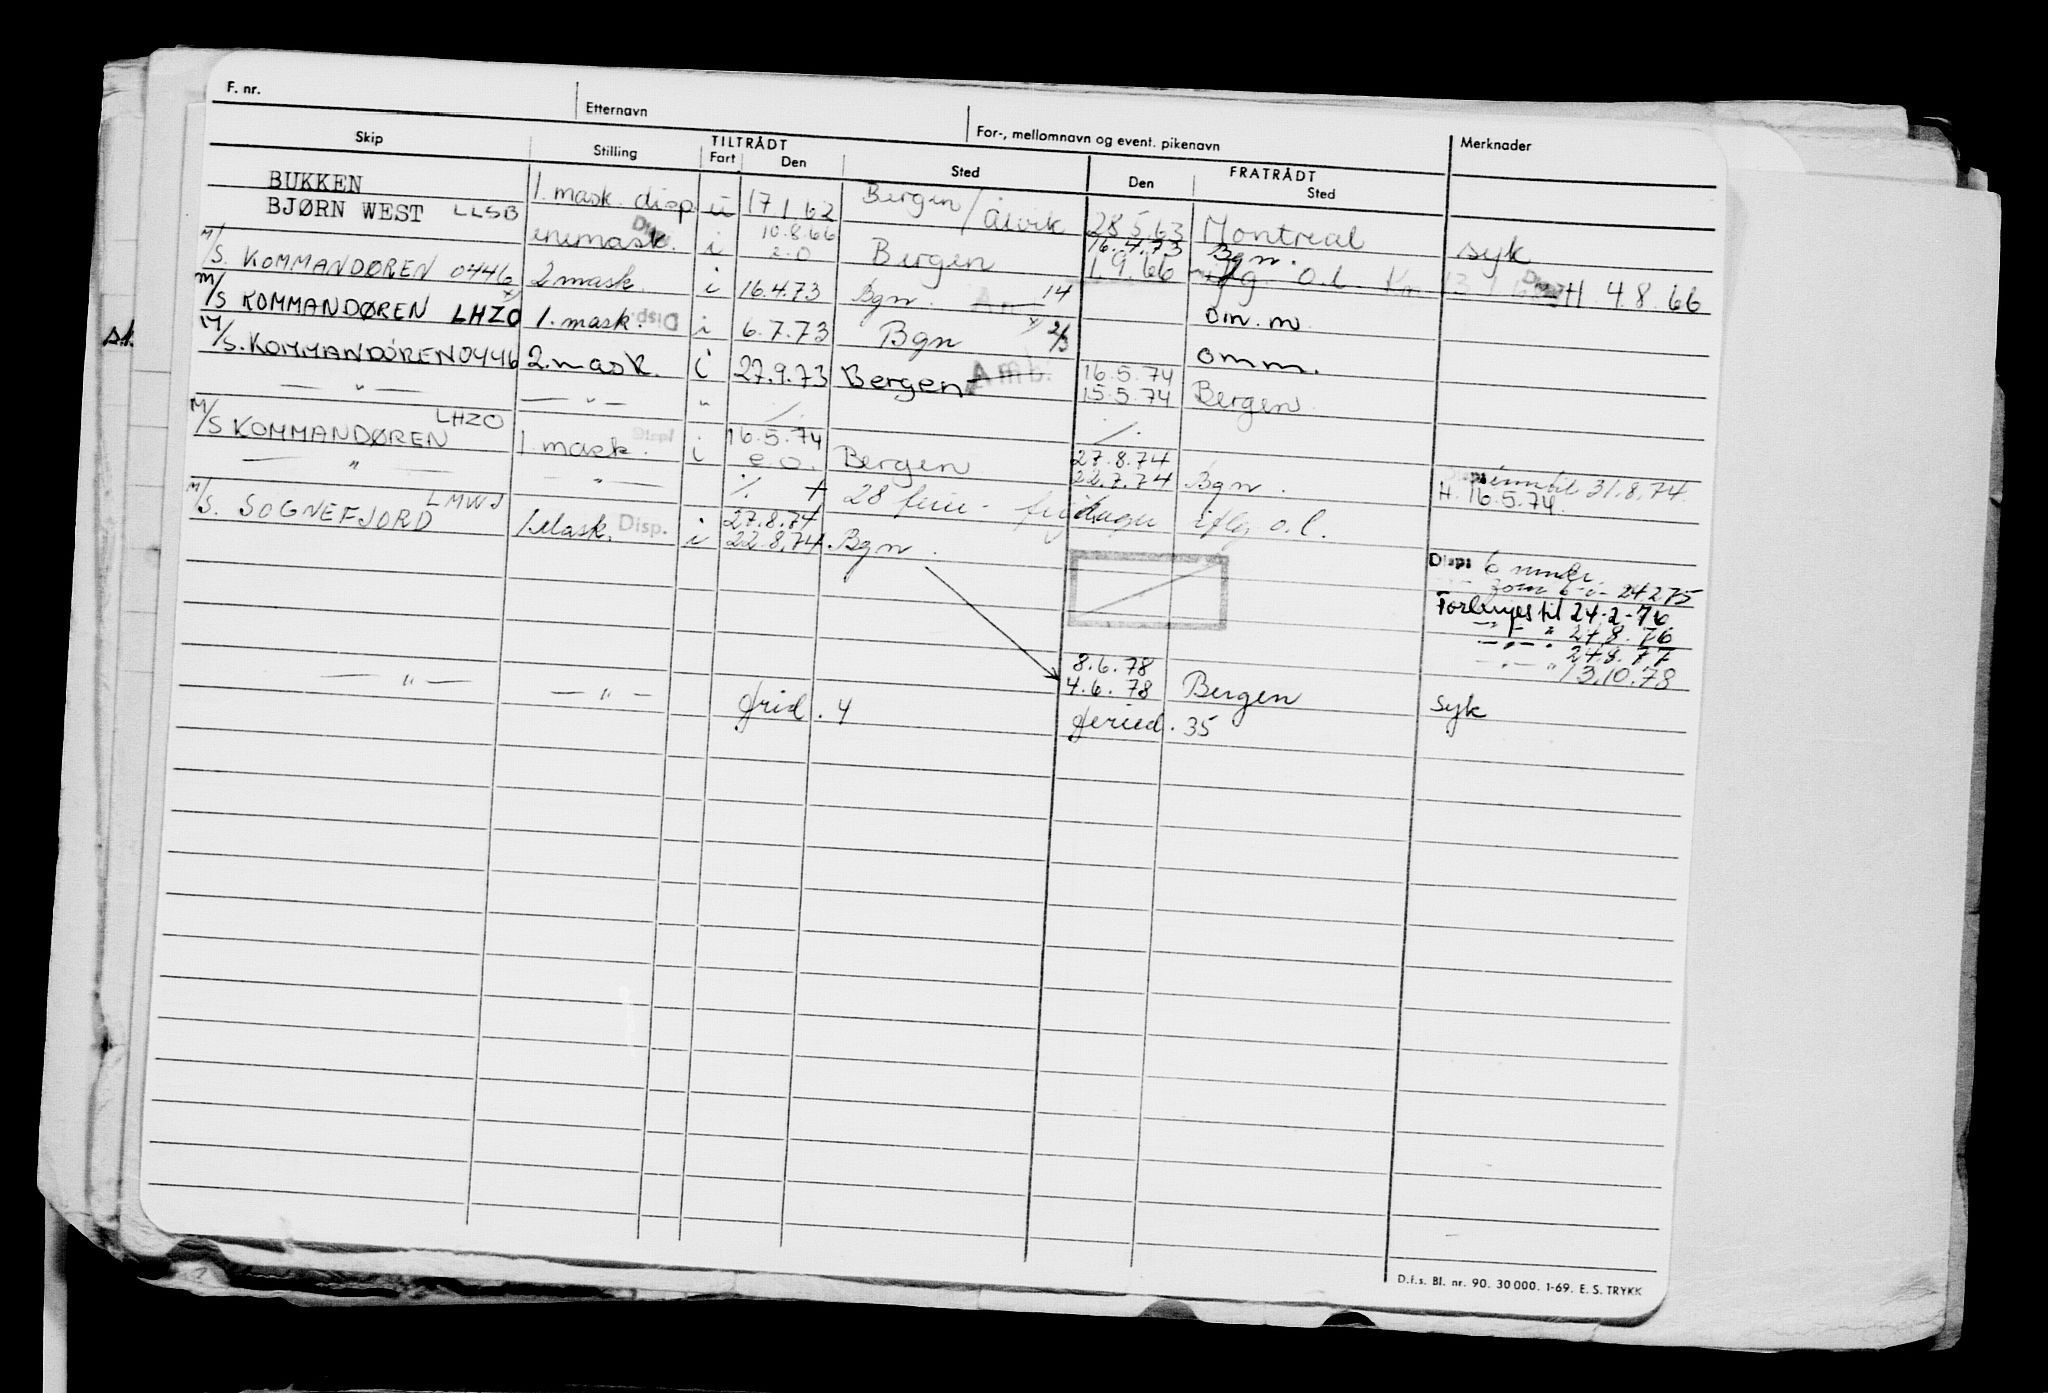 F. nr. Etternavn For-, mellomnavn og event. pikenavn Merknader
Skip Stilling TILTRÅDT Fart Den Sted FRATRÅDT Den Sted
BUKKEN 1. mask. disp. u 17.1.62 Bergen / Ålvik 28.5.63 Montreal syk
BJØRN WEST LLSB enemask. Disp. i 10.8.66 e.o Bergen 16.4.73 Bgn.
1.9.66 o.l. H. 4.8.66
M/S. KOMMANDØREN 0446 2 mask. i 16.4.73 Bgn. 14 din. m
M/S KOMMANDØREN LHZO 1. mask. Disp. i 6.7.73 Bgn 2/3 omm.
M/S. KOMMANDØREN 0446 2. mask. i 27.9.73 Bergen Amb. 16.5.74
15.5.74 Bergen
— " — — " — " ./. ./.
M/S KOMMANDØREN LHZO 1. mask. Disp i 16.5.74 e.o. Bergen 27.8.74
22.7.74 Bgn. Disp. inntil 31.8.74.
H. 16.5.74
— " — — " — ./. + 28 ferie- dager iflg. o.l.
M/S. SOGNEFJORD LMWJ 1. Mask. Disp. i 27.8.74
22.8.74. Bgn.
Disp: 6 mndr.
24275
Forlenges til 24-2-76
— " — " 24.8.76
— " — " 24.8.77
— " — " 13.10.78
8.6.78
4.6.78 Bergen syk
— " — — " — frid. 4 feried. 35
D.f.s. Bl. nr. 90. 30 000. 1-69. E. S. TRYKK